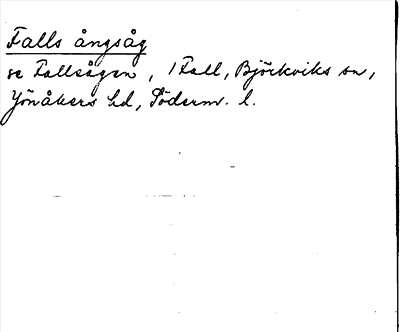 Falls ångsåg
se Fallsågen, 1 Fall, Björkviks sn,
Jönåkers hd, Söderm. l.